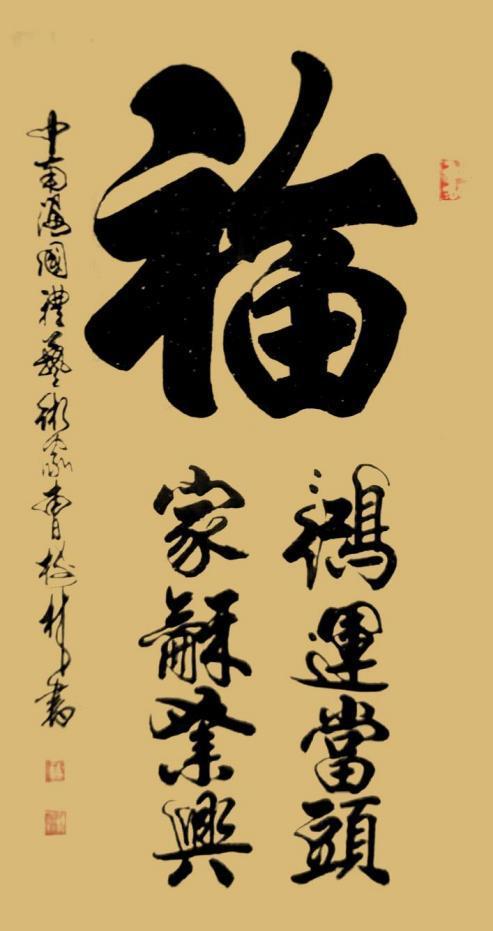 福
鴻運當頭
家龢業興
中南海國禮藝術家曹林書